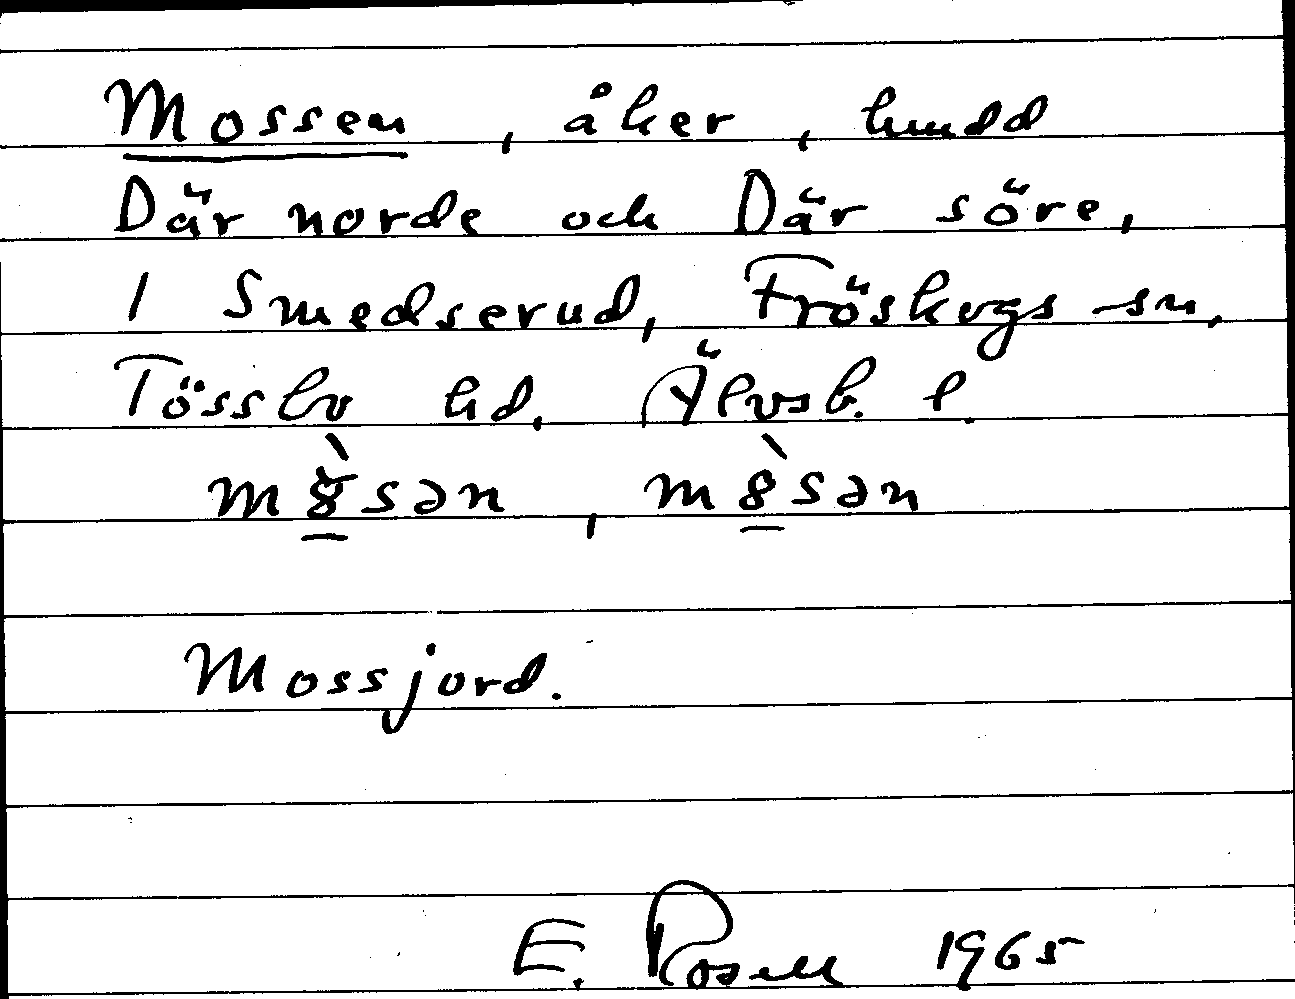 Mossen, åker, hmdd
Där norde och Där söre,
1 Smedserud, Fröskogs sn.
Tössbo hd. Älvsb. l.
m8̀sən, m8̀sən
Mossjord.
E. Rosell 1965